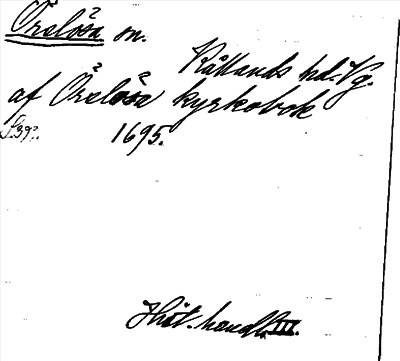 Öraslösa sn.
Kållands hd. Vg.
af Öraslösa kyrkobok
S.39. 1695.
Hist. handl. III.